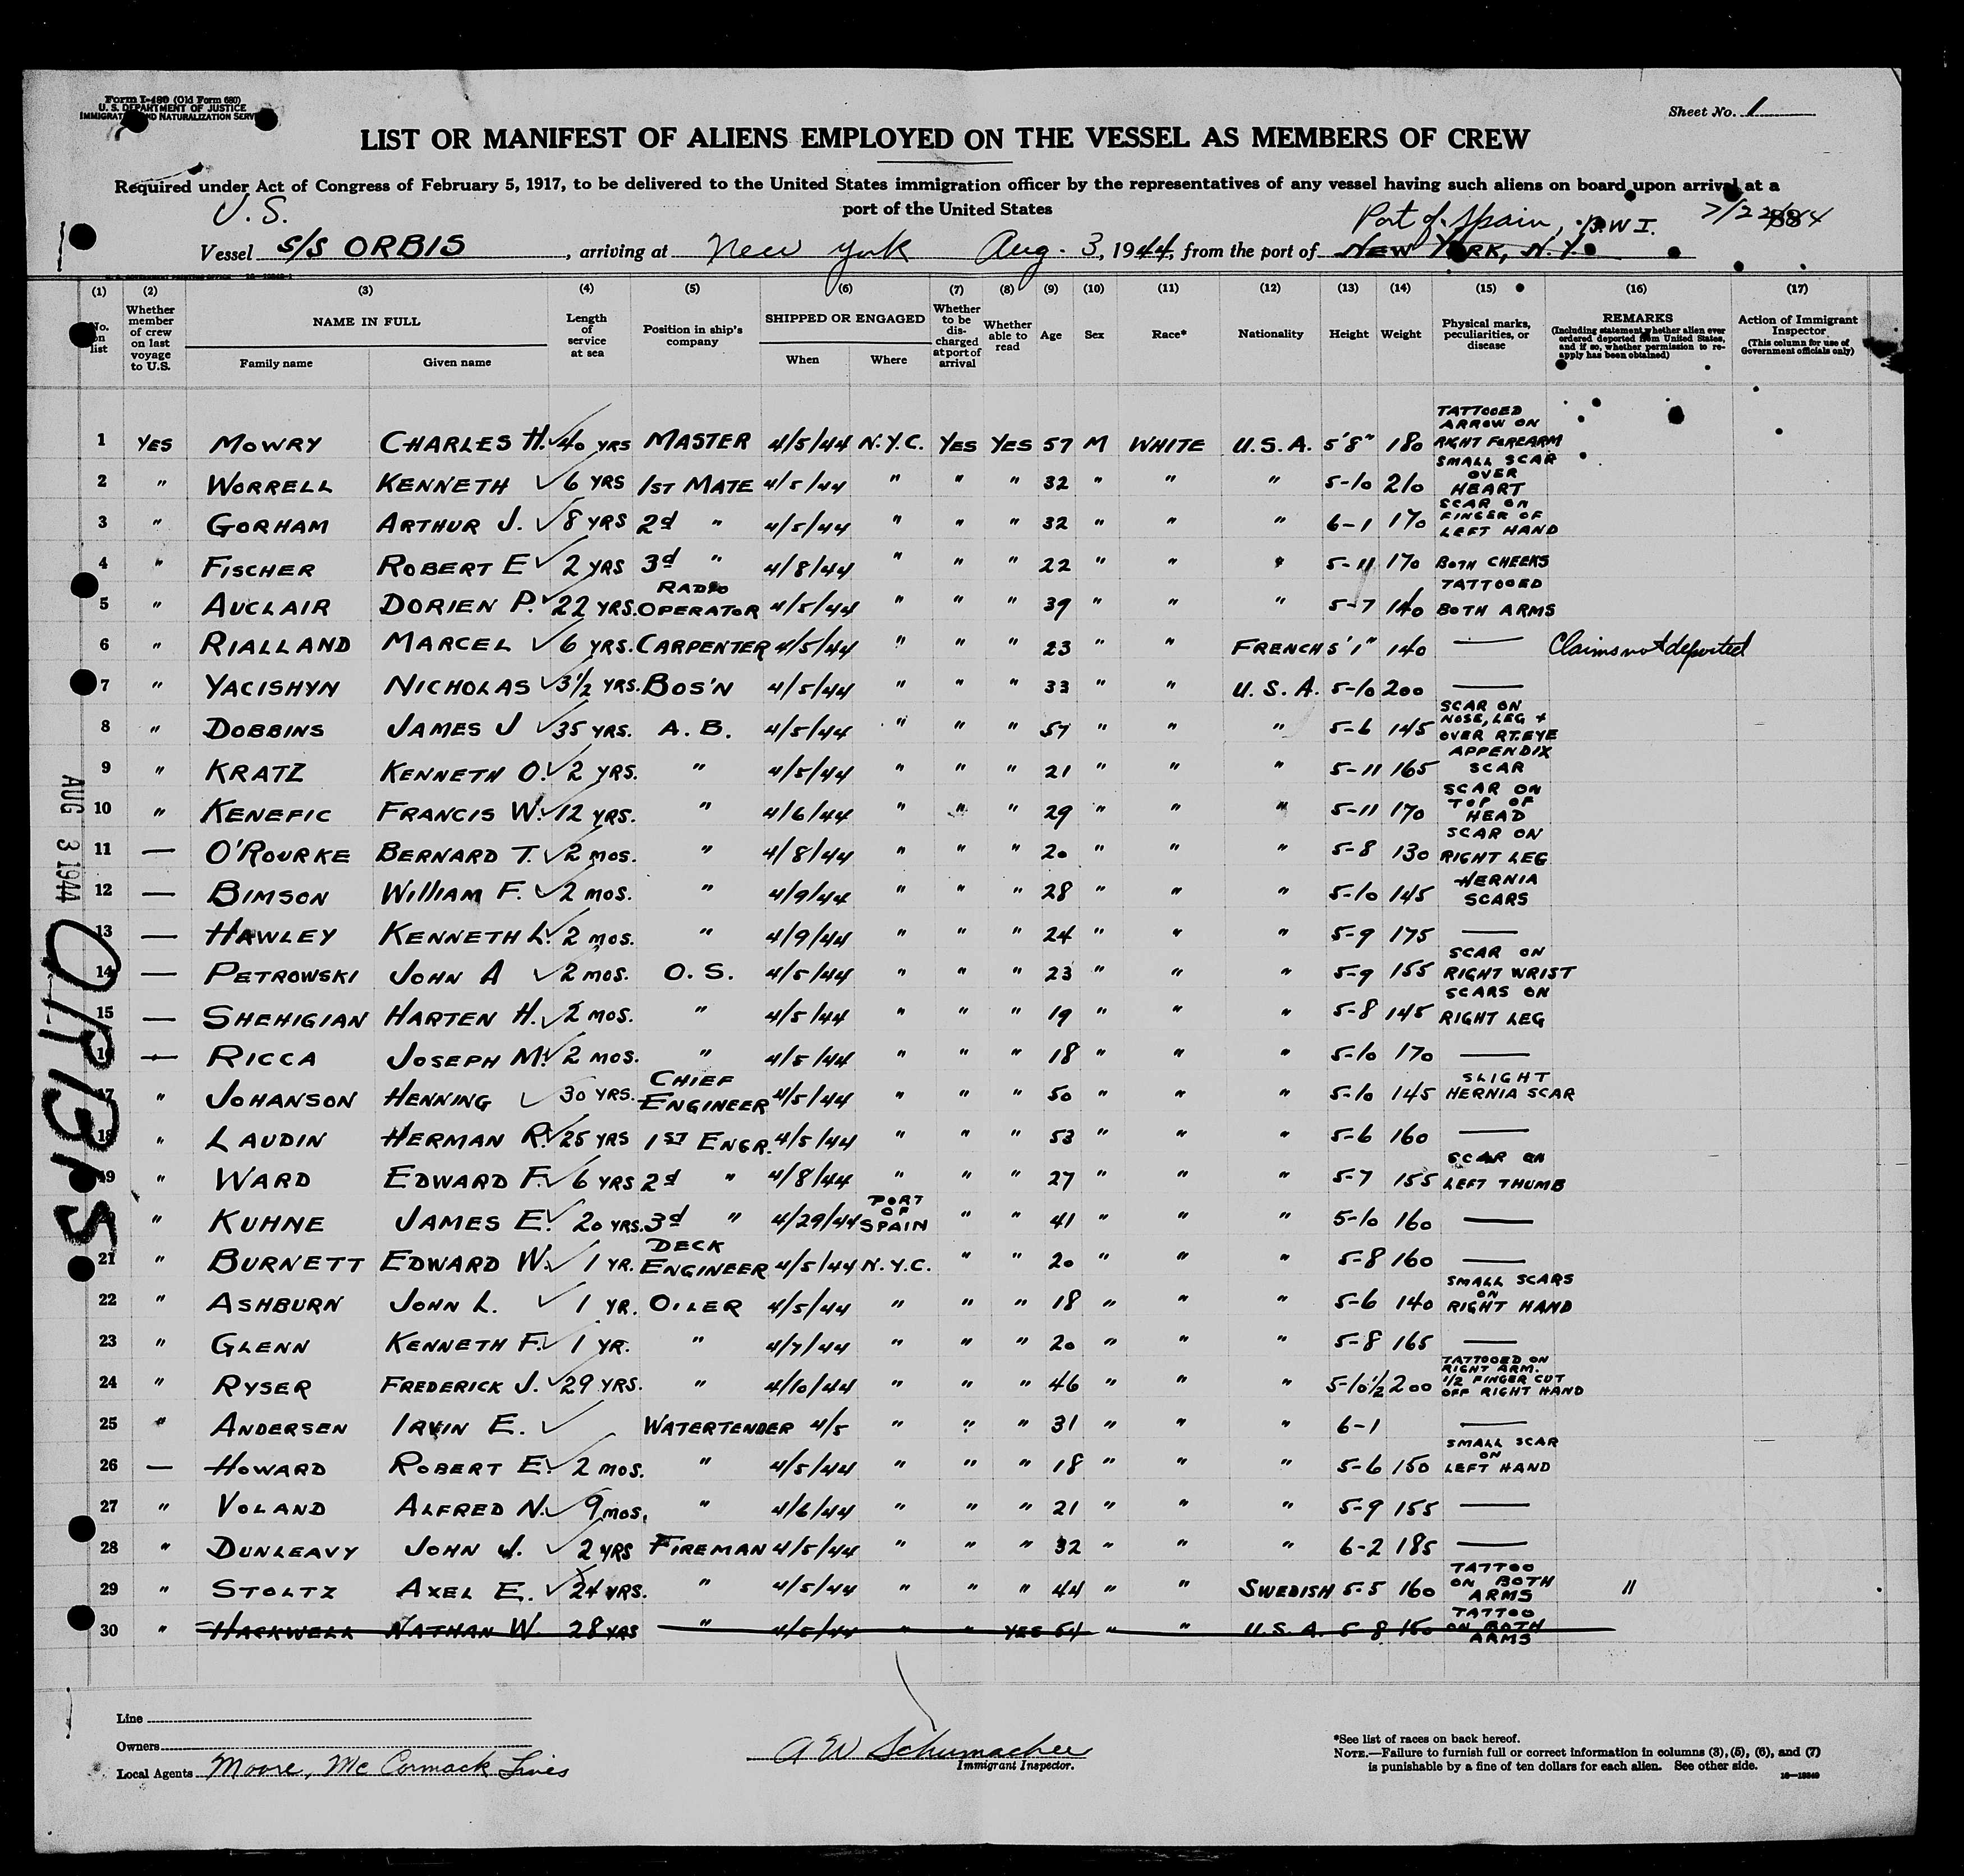 Form I-480 (Old Form 680)
U. S. DEPARTMENT OF JUSTICE
IMMIGRATION AND NATURALIZATION SERV
Sheet No. 1
LIST OR MANIFEST OF ALIENS EMPLOYED ON THE VESSEL AS MEMBERS OF CREW
Required under Act of Congress of February 5, 1917, to be delivered to the United States immigration officer by the representatives of any vessel having such aliens on board upon arrival at a
port of the United States
U.S. Port of Spain, B.W.I. 7/22/44
Vessel S/S ORBIS, arriving at New York Aug. 3, 1944, from the port of NEW YORK, N.Y.
(1) (2) (3) (4) (5) (6) (7) (8) (9) (10) (11) (12) (13) (14) (15) (16) (17)
No. on list
Whether member of crew on last voyage to U.S.
NAME IN FULL
Family name Given name
Length of service at sea
Position in ship's company
SHIPPED OR ENGAGED
When Where
Whether to be discharged at port of arrival
Whether able to read
Age Sex Race* Nationality Height Weight
Physical marks, peculiarities, or disease
REMARKS
(Including statement whether alien ever ordered deported from United States, and if so, whether permission to reapply has been obtained)
Action of Immigrant Inspector
(This column for use of Government officials only)
1 YES MOWRY CHARLES H. 40 YRS MASTER 4/5/44 N.Y.C. YES YES 57 M WHITE U.S.A. 5'8" 180 TATTOOED ARROW ON RIGHT FOREARM
2 " WORRELL KENNETH 6 YRS 1ST MATE 4/5/44 " " " 32 " " " 5-10 210 SMALL SCAR OVER HEART
3 " GORHAM ARTHUR J. 8 YRS 2d " 4/5/44 " " " 32 " " " 6-1 170 SCAR ON FINGER OF LEFT HAND
4 " FISCHER ROBERT E 2 YRS 3d " 4/8/44 " " " 22 " " " 5-11 170 BOTH CHEEKS
5 " AUCLAIR DORIEN P. 22 YRS. RADIO OPERATOR 4/5/44 " " " 39 " " " 5-7 140 TATTOOED BOTH ARMS
6 " RIALLAND MARCEL 6 YRS. CARPENTER 4/5/44 " " " 23 " " FRENCH 5'1" 140 — Claims not deported
7 " YACISHYN NICHOLAS 3½ YRS. BOS'N 4/5/44 " " " 33 " " U.S.A. 5-10 200 —
8 " DOBBINS JAMES J 35 YRS. A.B. 4/5/44 " " " 57 " " " 5-6 145 SCAR ON NOSE, LEG + OVER RT. EYE
9 " KRATZ KENNETH O. 2 YRS. " 4/5/44 " " " 21 " " " 5-11 165 APPENDIX SCAR
10 " KENEFIC FRANCIS W. 12 YRS. " 4/6/44 " " " 29 " " " 5-11 170 SCAR ON TOP OF HEAD
11 — O'ROURKE BERNARD T. 2 MOS. " 4/8/44 " " " 20 " " " 5-8 130 SCAR ON RIGHT LEG
12 — BIMSON William F. 2 MOS. " 4/9/44 " " " 28 " " " 5-10 145 HERNIA SCARS
13 — HAWLEY KENNETH L. 2 MOS. " 4/9/44 " " " 24 " " " 5-9 175 —
14 — PETROWSKI JOHN A 2 MOS. O.S. 4/5/44 " " " 23 " " " 5-9 155 SCAR ON RIGHT WRIST
15 — SHEHIGIAN HARTEN H. 2 MOS. " 4/5/44 " " " 19 " " " 5-8 145 SCARS ON RIGHT LEG
16 — RICCA JOSEPH M. 2 MOS. " 4/5/44 " " " 18 " " " 5-10 170 —
17 " JOHANSON HENNING 30 YRS. CHIEF ENGINEER 4/5/44 " " " 50 " " " 5-10 145 SLIGHT HERNIA SCAR
18 " LAUDIN HERMAN R. 25 YRS 1ST ENGR. 4/5/44 " " " 53 " " " 5-6 160 —
19 " WARD EDWARD F. 6 YRS 2d " 4/8/44 " " " 27 " " " 5-7 155 SCAR ON LEFT THUMB
" KUHNE JAMES E. 20 YRS. 3d " 4/29/44 PORT OF SPAIN " " 41 " " " 5-10 160 —
21 " BURNETT EDWARD W. 1 YR. DECK ENGINEER 4/5/44 N.Y.C. " " 20 " " " 5-8 160 —
22 " ASHBURN JOHN L. 1 YR. OILER 4/5/44 " " " 18 " " " 5-6 140 SMALL SCARS ON RIGHT HAND
23 " GLENN KENNETH F. 1 YR. " 4/7/44 " " " 20 " " " 5-8 165 —
24 " RYSER FREDERICK J. 29 YRS. " 4/10/44 " " " 46 " " " 5-10½ 200 TATTOOED ON RIGHT ARM. 1/2 FINGER CUT OFF RIGHT HAND
25 " ANDERSEN IRVIN E. WATERTENDER 4/5 " " " 31 " " " 6-1 —
26 — HOWARD ROBERT E. 2 MOS. " 4/5/44 " " " 18 " " " 5-6 150 SMALL SCAR ON LEFT HAND
27 " VOLAND ALFRED N. 9 MOS. " 4/6/44 " " " 21 " " " 5-9 155 —
28 " DUNLEAVY JOHN J. 2 YRS FIREMAN 4/5/44 " " " 32 " " " 6-2 185 —
29 " STOLTZ AXEL E. 24 YRS. " 4/5/44 " " " 44 " " SWEDISH 5-5 160 TATTOO ON BOTH ARMS "
30 " HACKWELL NATHAN W. 28 YRS " 4/5/44 " " YES 54 " " U.S.A. 5-8 150 TATTOO ON BOTH ARMS
AUG 3 1944
ORBIS
Line
Owners
Local Agents Moore, McCormack Lines
A W Schumacher
Immigrant Inspector.
*See list of races on back hereof.
NOTE.—Failure to furnish full or correct information in columns (3), (5), (6), and (7)
is punishable by a fine of ten dollars for each alien. See other side.